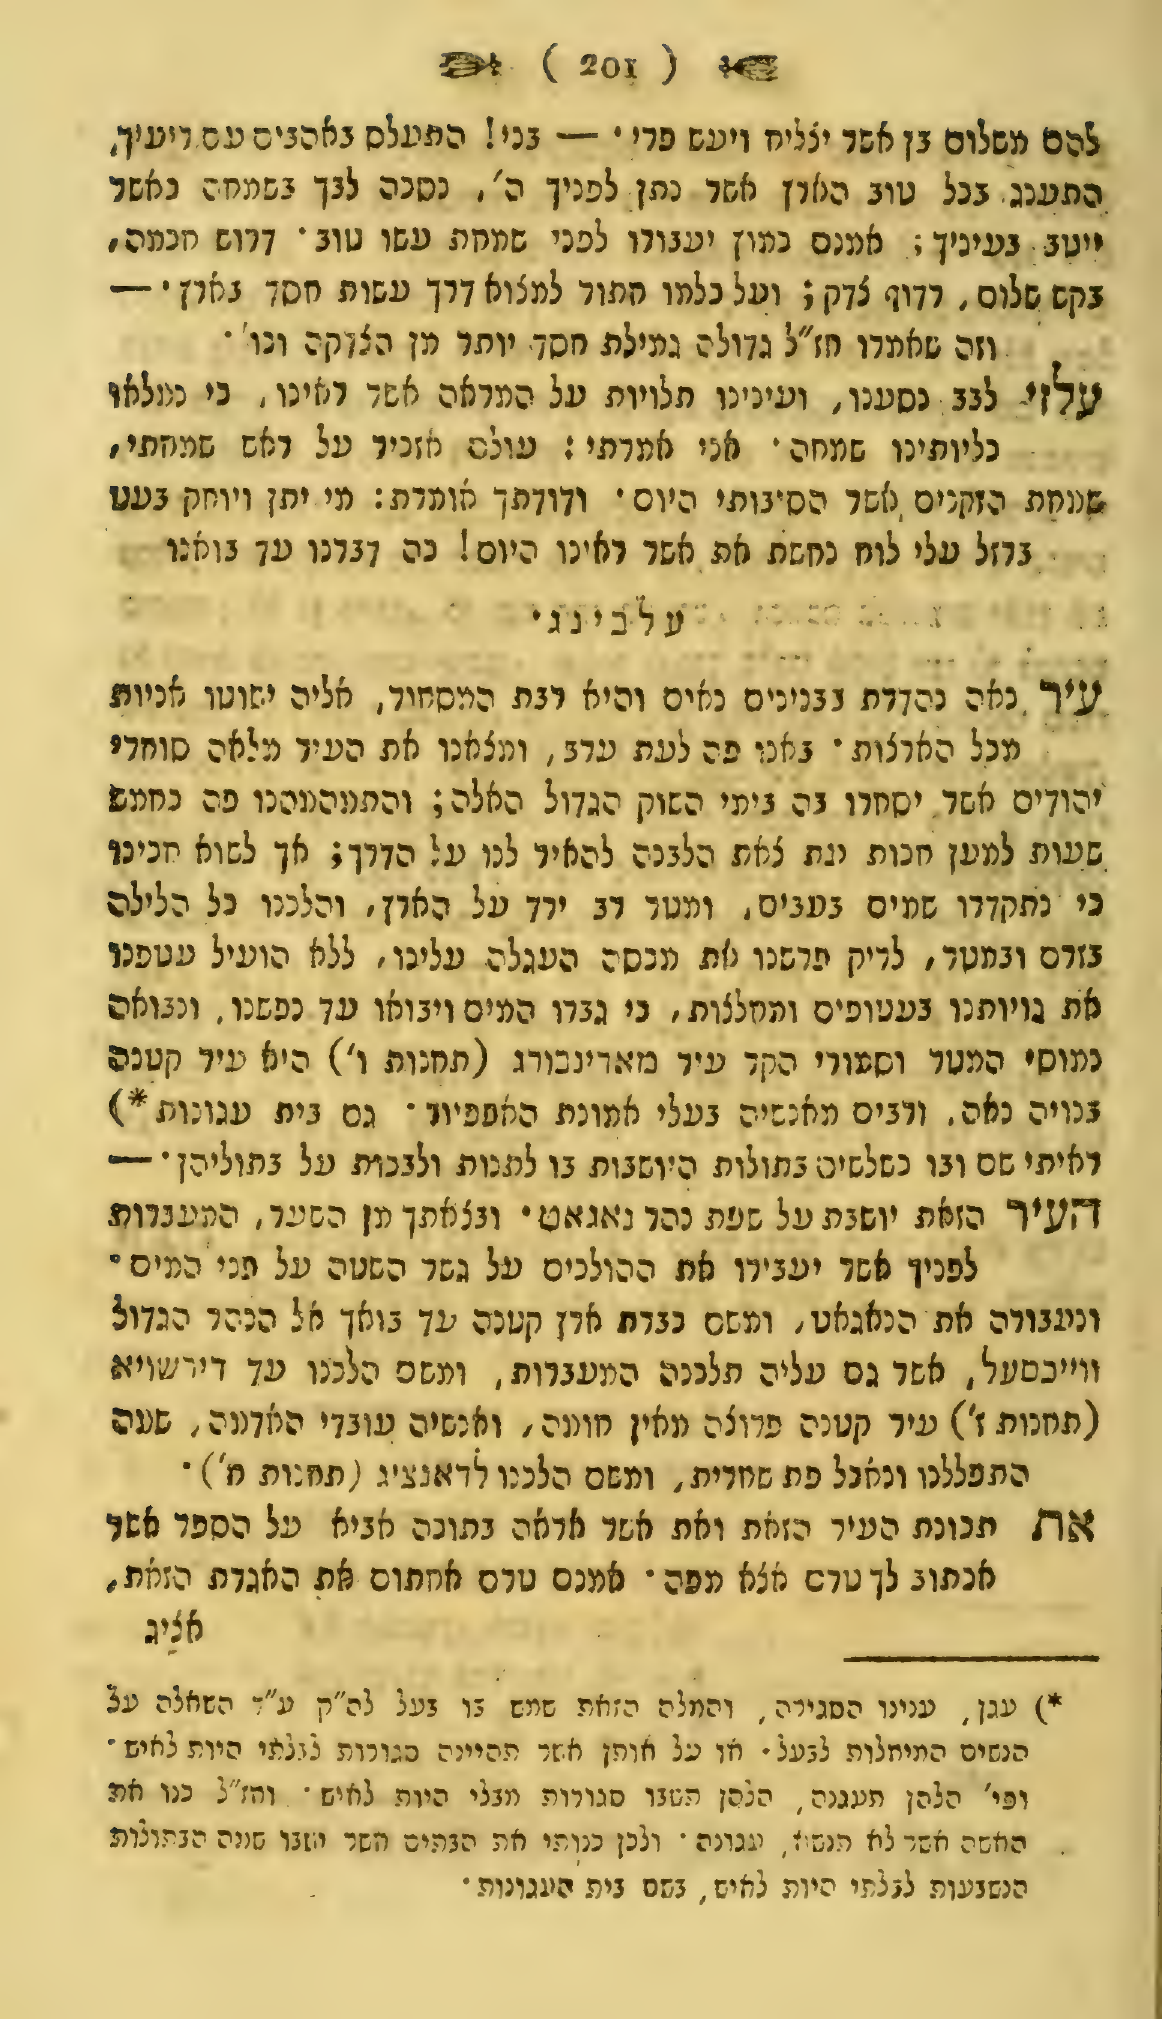 ( 201 )
להם משלום בן אשר יצליח ויעש פרי · — בני! התעלס באהבים עם ריעיך,
התענג בכל טוב הארץ אשר נתן לפניך ה', נסכה לבך בשמחה כאשר
ייטב בעיניך; אמנם כמוץ יעבורו לפני שמחת עשו טוב · דרוש חכמה,
בקש שלום, רדוף צדק; ועל כלמו תתור למצוא דרך עשות חסד בארץ · —
וזה שאמרו חז"ל גדולה גמילת חסד יותר מן הצדקה וכו' ·
עלזי לבב נסענו, ועינינו תלויות על המראה אשר ראינו, כי נמלאו
כליותינו שמחה · אני אמרתי: עולם אזכיר על ראש שמחתי,
שמחת הזקנים אשר הסיבותי היום · ודודתך אומרת: מי יתן ויוחק בעט
ברזל עלי לוח נחשת את אשר ראינו היום! כה דברנו עד בואנו
עלבינג ·
עיר נאה נהדרת בבנינים נאים והיא רבת המסחור, אליה ישוטו אניות
מכל הארצות · באנו פה לעת ערב, ומצאנו את העיר מלאה סוחרי
יהודים אשר יסחרו בה בימי השוק הגדול האלה; והתמהמהנו פה כחמש
שעות למען חכות עת צאת הלבנה להאיר לנו על הדרך; אך לשוא חכינו
כי נתקדרו שמים בעבים, ומטר רב ירד על הארץ, והלכנו כל הלילה
בזרם ובמטר, לריק פרשנו את מכסה העגלה עלינו, ללא הועיל עטפנו
את גויותנו בעטופים ומחלצות, כי גברו המים ויבואו עד נפשנו, ונבואה
נמוסי המטר וסמורי הקר עיר מאריענבורג (תחנות ו') היא עיר קטנה
בנויה נאה, ורבים מאנשיה בעלי אמונת האפפיור · גם בית עגונות *)
ראיתי שם ובו כשלשים בתולות היושבות בו לתנות ולבכות על בתוליהן · —
העיר הזאת יושבת על שפת נהר נאגאט · ובצאתך מן השער, המעברות
לפניך אשר יעבירו את ההולכים על גשר השטה על פני המים ·
ונעבורה את הנאגאט, ומשם כברת ארץ קטנה עד בואך אל הנהר הגדול
ווייכסעל, אשר גם עליה תלכנה המעברות, ומשם הלכנו עד דירשויא
(תחנות ז') עיר קטנה פרוצה מאין חומה, ואנשיה עובדי האדמה, שעה
התפללנו ונאכל פת שחרית, ומשם הלכנו לדאנציג (תחנות ח') ·
את תכונת העיר הזאת ואת אשר אראה בתוכה אביא על הספר אשר
אכתוב לך טרם אצא מפה · אמנם טרם אחתום את האגרת הזאת,
אציג
*) עגן, ענינו הסגירה, והמלה הזאת שמש בו בעל לה"ק ע"ד השאלה על
הנשים המיחלות לבעל · או על אותן אשר תהיינה סגורות לבלתי היות לאיש ·
ופי' הלהן תעגנה, הלהן תשבו סגורות מבלי היות לאיש · וחז"ל כנו את
האשה אשר לא תנשא, עגונה · ולכן כנותי את הבתים אשר ישבו שמה הבתולות
הנשבעות לבלתי היות לאיש, בשם בית העגונות ·